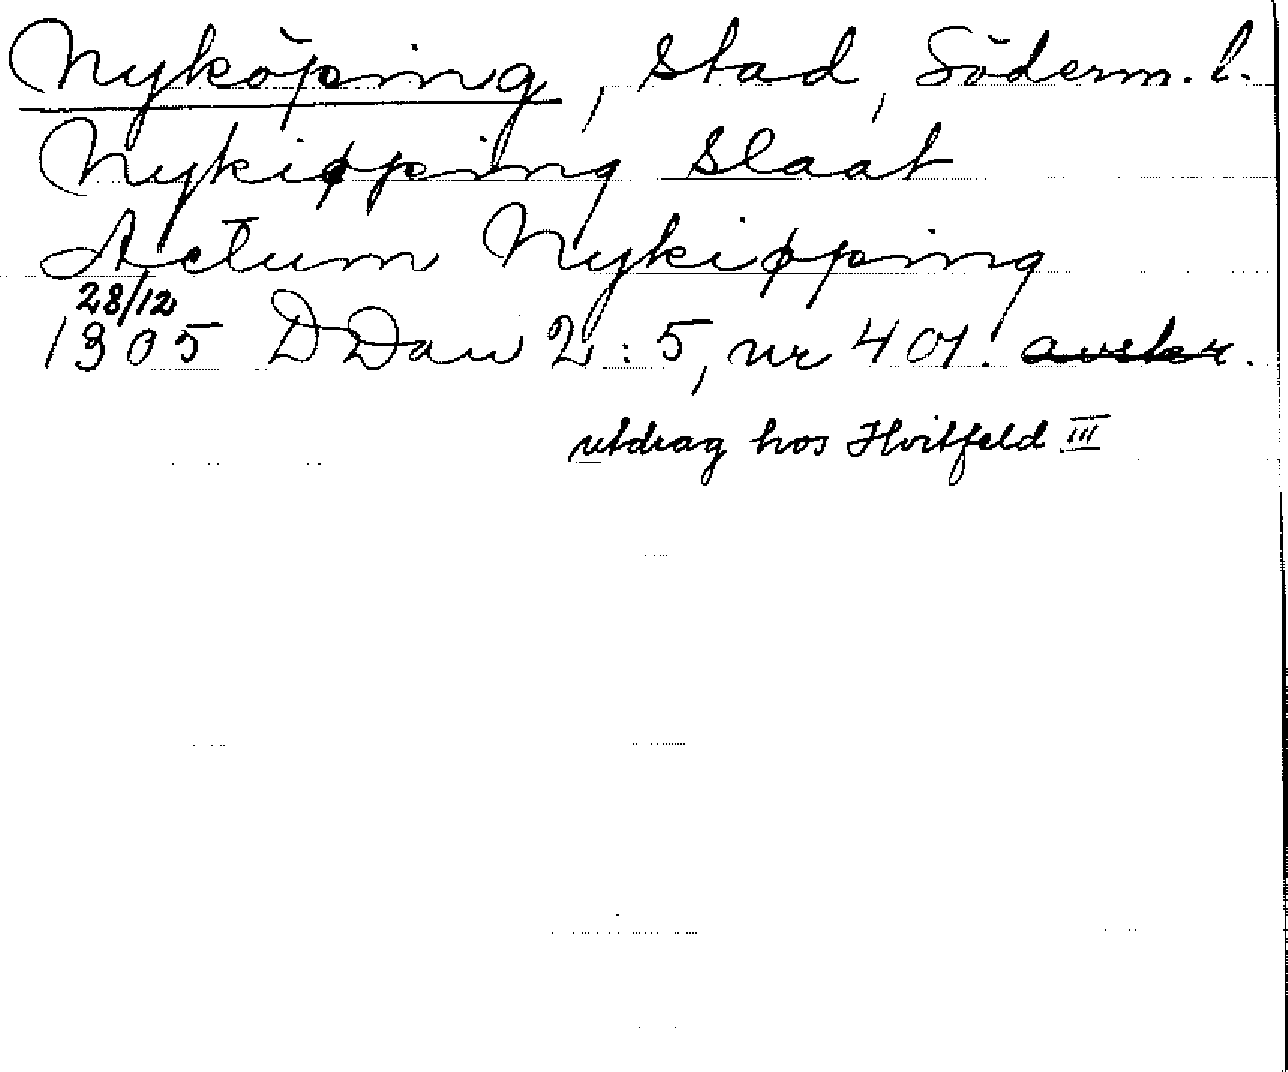 Nyköping, stad, Söderm. l.
Nykiøping Slaat
Actum Nykiøpping
28/12
1305 DDan 2:5, nr 401. avskr.
utdrag hos Hvitfeld III